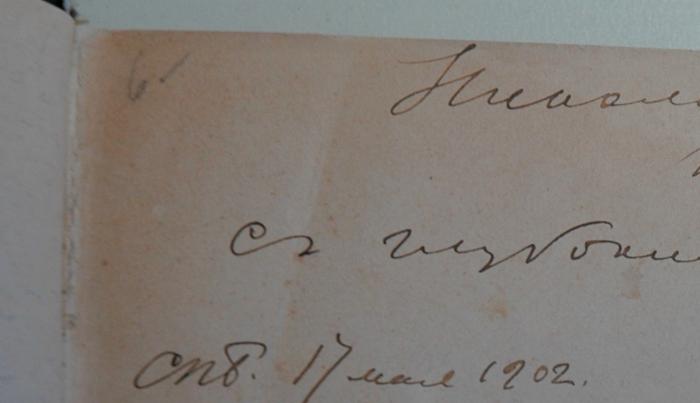 6
Никола
съ глубоки
СПб. 17 мая 1902.